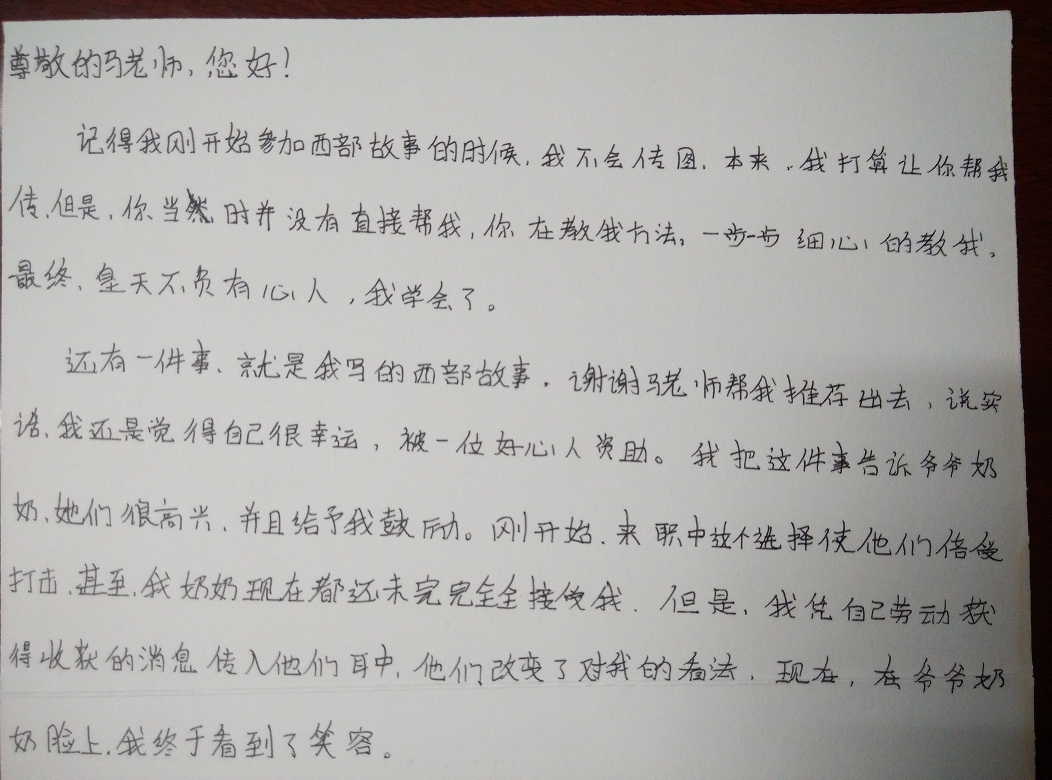 尊敬的马老师，您好！
记得我刚开始参加西部故事的时候，我不会传图，本来，我打算让你帮我
传，但是，你当然时并没有直接帮我，你在教我方法，一步一步细心的教我。
最终，皇天不负有心人，我学会了。
还有一件事，就是我写的西部故事。谢谢马老师帮我推荐出去，说实
话，我还是觉得自己很幸运，被一位好心人资助。我把这件事告诉爷爷奶
奶，她们很高兴，并且给予我鼓励。刚开始，来职中这个选择使他们倍受
打击，甚至，我奶奶现在都还未完完全全接受我，但是，我凭自己劳动获
得收获的消息传入他们耳中，他们改变了对我的看法，现在，在爷爷奶
奶脸上，我终于看到了笑容。